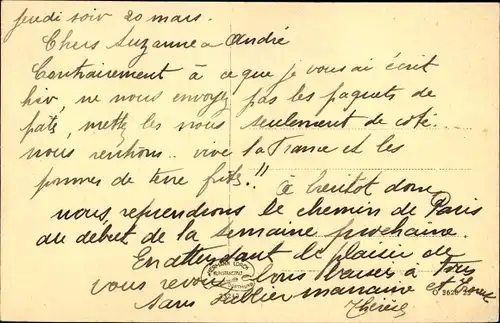 Jeudi soir 20 mars.
Chers Suzanne & André
Contrairement à ce que je vous ai écrit
hier, ne nous envoyez pas les paquets de
pâte, mettez les nous seulement de coté.
nous rentrons.. vive la France et les
pommes de terre frites!!
à bientôt donc
nous reprendrons le chemin de Paris
au début de la semaine prochaine.
En attendant le plaisir de
vous revoir bons baisers à Tous
sans oublier marraine et
Thérèse